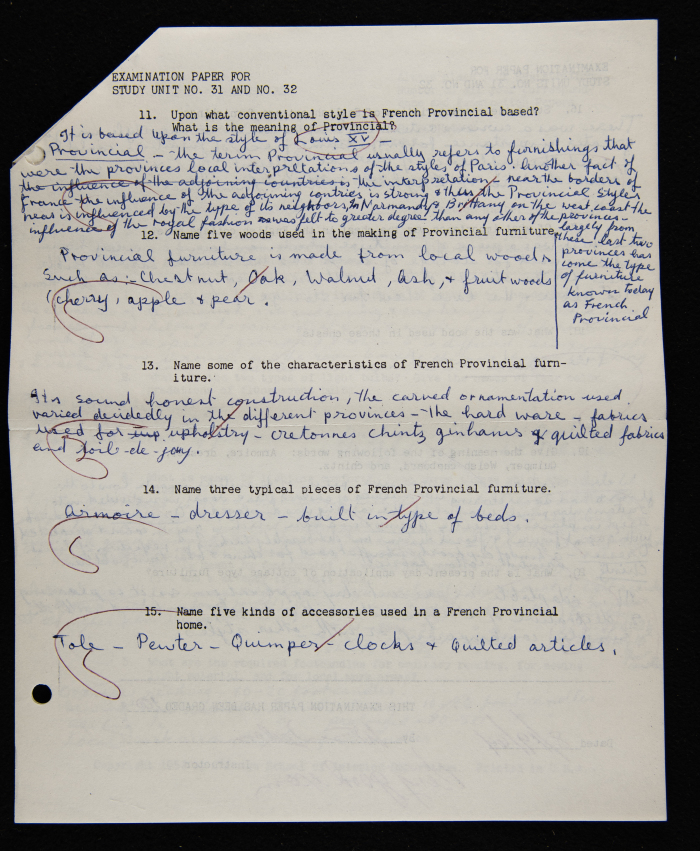 EXAMINATION PAPER FOR
STUDY UNIT NO. 31 AND NO. 32
11. Upon what conventional style is French Provincial based?
What is the meaning of Provincial?
It is based upon the style of Louis XV –
Provincial – the term Provincial usually refers to furnishings that
were the provinces local interpretations of the styles of Paris. Another fact of
the influence of the adjoining countries is the inter relation, near the borders of
France the influence of the adjoining contries is strong & thus the Provincial Styles
near is influenced by the type of its neighbors, In Normandy & Brittany on the west coast the
influence of the royal fashion was felt to greater degree than any other of the provinces –
largely from
these last two
provinces has
come the type
of furniture
known today
as French
Provincial
12. Name five woods used in the making of Provincial furniture.
Provincial furniture is made from local woods
Such as :- Chestnut, Oak, Walnut, ash, & fruit woods
(cherry, apple & pear.
13. Name some of the characteristics of French Provincial furn-
iture.
Its sound honest construction, the carved ornamentation used
varied decidedly in the different provinces – the hard ware – fabrics
used for upholstry – cretonnes chintz ginhams & quilted fabrics
and toile-de-jouy.
14. Name three typical pieces of French Provincial furniture.
Armoire – dresser – built in type of beds.
15. Name five kinds of accessories used in a French Provincial
home.
Tole – Pewter – Quimper – clocks & Quilted articles.